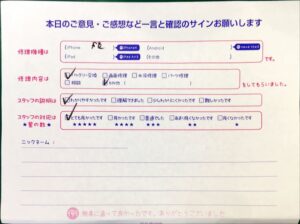 本日のご意見・ご感想など一言と確認のサインお願いします
修理機種は
iPhone
Android
iPad
その他
です。
修理内容は
バッテリー交換 画面修理 水没修理 パーツ修理
相談 その他
をしてもらいました。
スタッフの説明は
わかりやすかったです 理解できました 少しわかりにくかったです 難しかったです
スタッフの対応は
★星の数★
とても良かったです 良かったです 普通でした あまり良くなかったです 良くなかったです
★★★★★ ★★★★ ★★★ ★★ ★
ニックネーム：